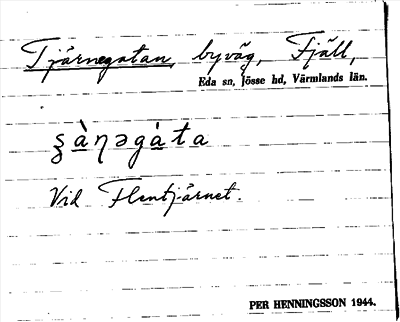 Tjärnegatan, byväg, Fjäll,
Eda sn, Jösse hd, Värmlands län.
ʂà̱ɳəgà̱ta
Vid Flentjärnet.
PER HENNINGSSON 1944.